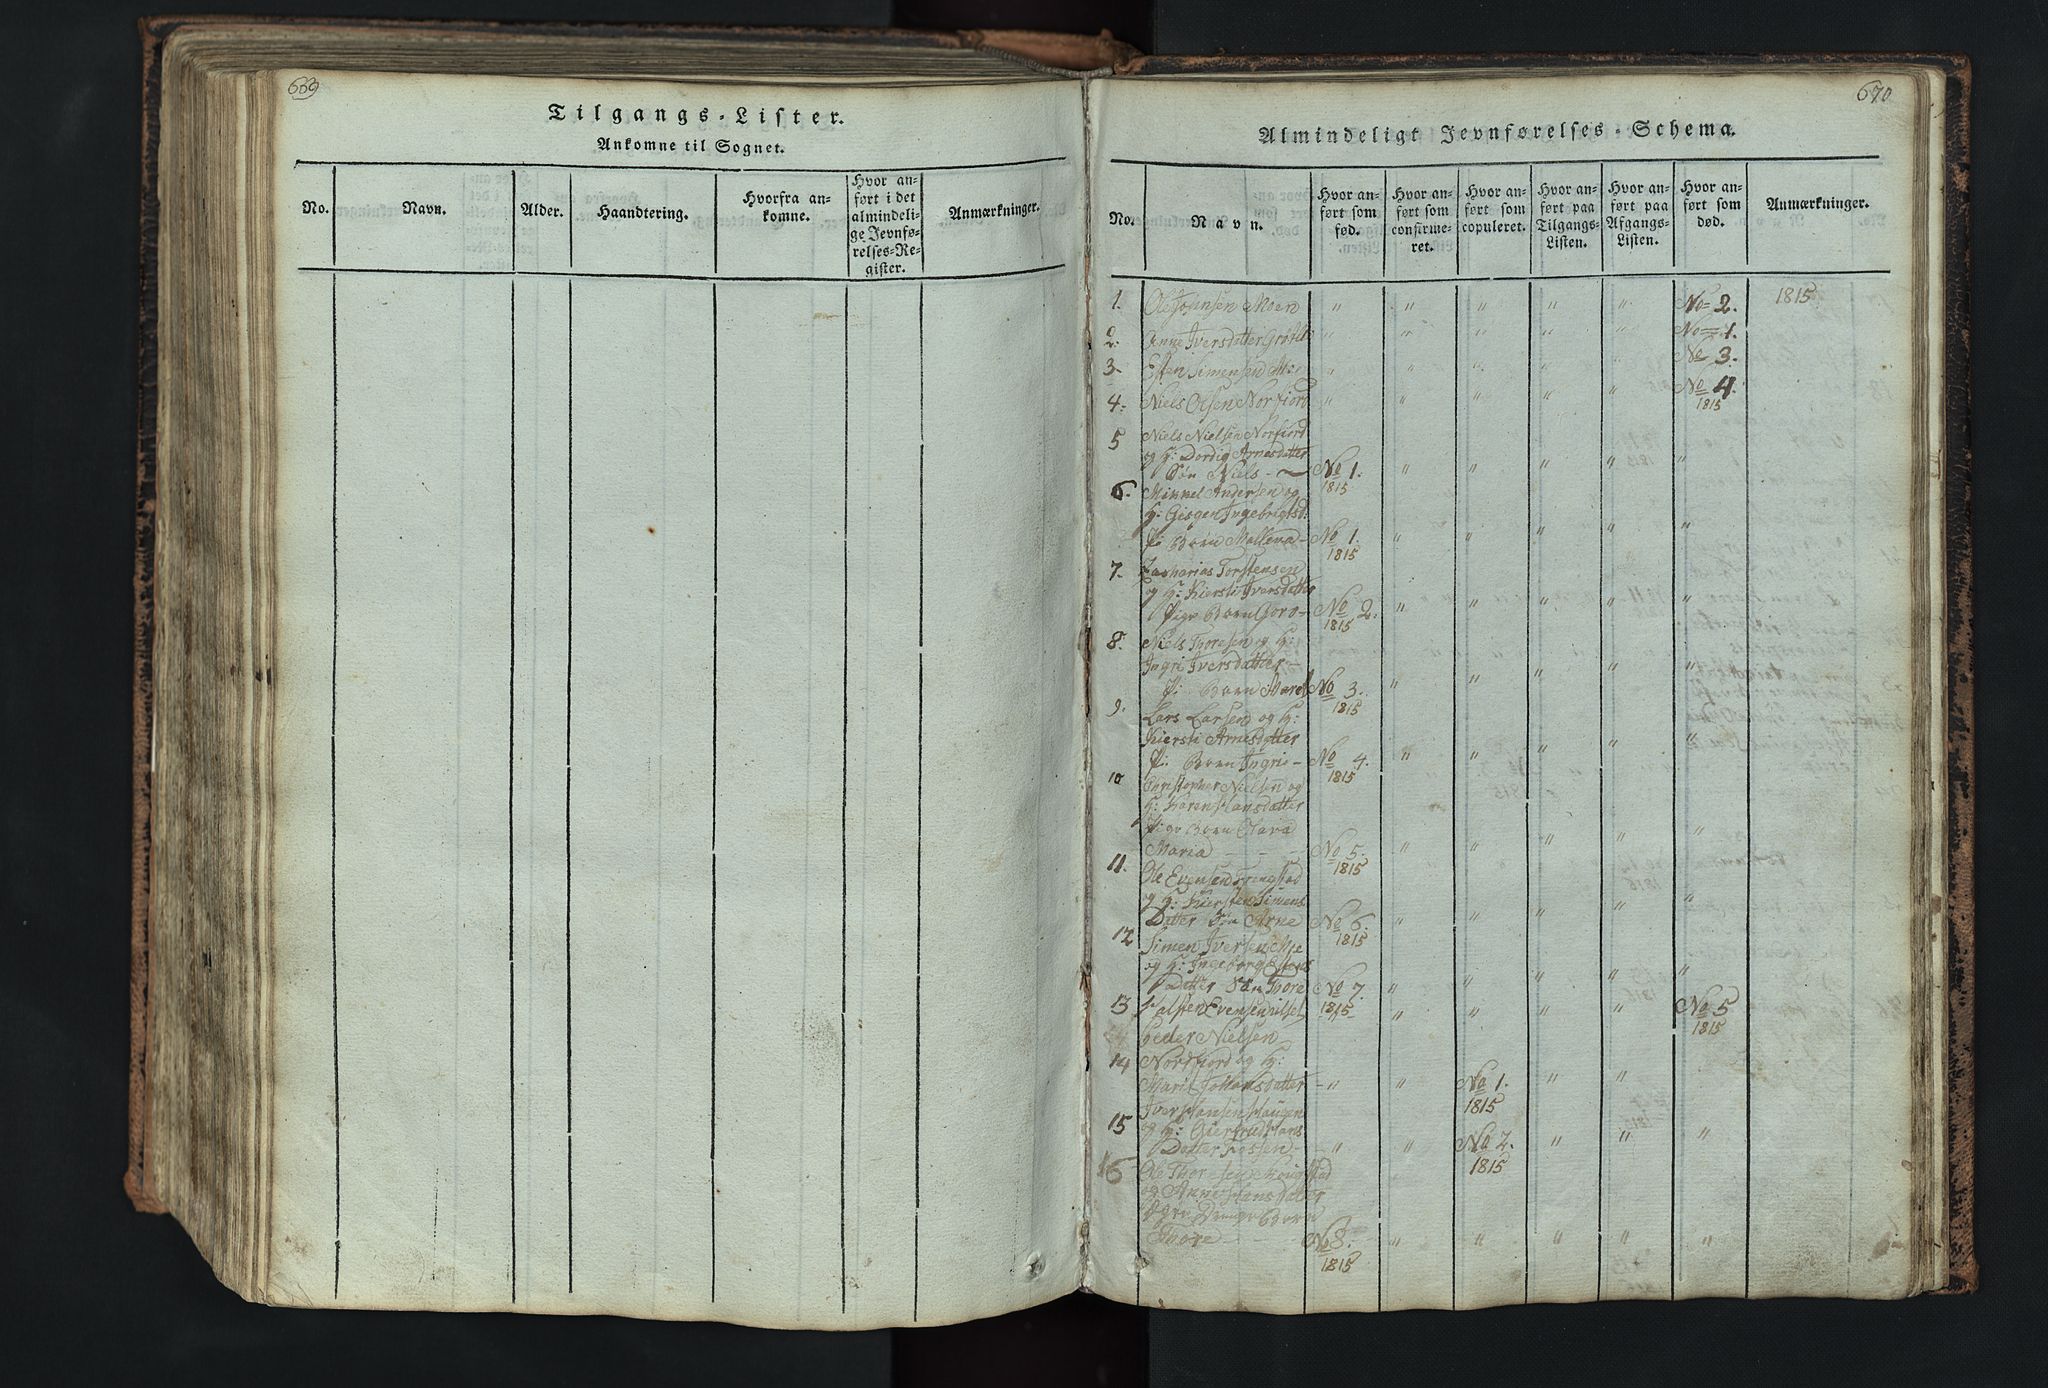 669
Tilgangs-Lister.
Ankomne til Sognet.
No.
Navn.
Alder.
Haandtering.
Hvorfra an-
komne.
Hvor an-
ført i det
almindeli-
ge Jevnfø-
relses-Re-
gister.
Anmærkninger.
670
Almindeligt Jevnførelses-Schema.
No.
Navn.
Hvor an-
ført som
fød.
Hvor an-
ført som
confirme-
ret.
Hvor an-
ført som
copuleret.
Hvor an-
ført paa
Tilgangs-
Listen.
Hvor an-
ført paa
Afgangs-
Listen.
Hvor an-
ført som
død.
Anmærkninger.
1. Ole Moen " " " " " No 2. 1815
2. Anne Iversdatter " " " " " No 1.
3. Esten Simensen " " " " " No 3.
4. Niels Olsen Norfiord " " " " " No 4.
1815
5 Niels Nielsen Norfiord
og H: Dordig Arnesdatter
Søn Niels - No 1. " " " " "
1815
6. Mikkel Andersen og
H: Ingebrigtsd:
P: Barn - No 1. " " " " "
1815
7. Zacharias Torstensen
og H: Kiersti Iversdatter
Pige Barn Goro - No 2. " " " " "
1815
8. Niels Thoresen og H:
Ingri Iversdatter -
P: Barn Marit No 3. " " " " "
1815
9. Lars Larsen og H:
Kiersti Arnesdatter
P: Barn Ingri - No 4. " " " " "
1815
10 Christopher Nielsen og
H: Karen Hansdatter
Pige Barn Clara
Maria - - - No 5. " " " " "
1815
11. Ole Evensen
og H: Kiersten Simens
Datter Søn Arne No 6. " " " " "
1815
12 Simen Iversen Moe
og H: Ingeborg Estens
Datter Søn Thore No 7. " " " " "
1815
13 Halsten Evensen " " " " No 5
1815
Peder Nielsen
14 Nordfjord og H:
Marit Johansdatter - " " No 1. " "
1815
15 Iver Hansen Haugen
og H: Hans
Datter - " " No 2. " " "
1815
16 Ole Thoresen
og Anne Hansdatter
Barn
Thore - - No 8. " " " " "
1815